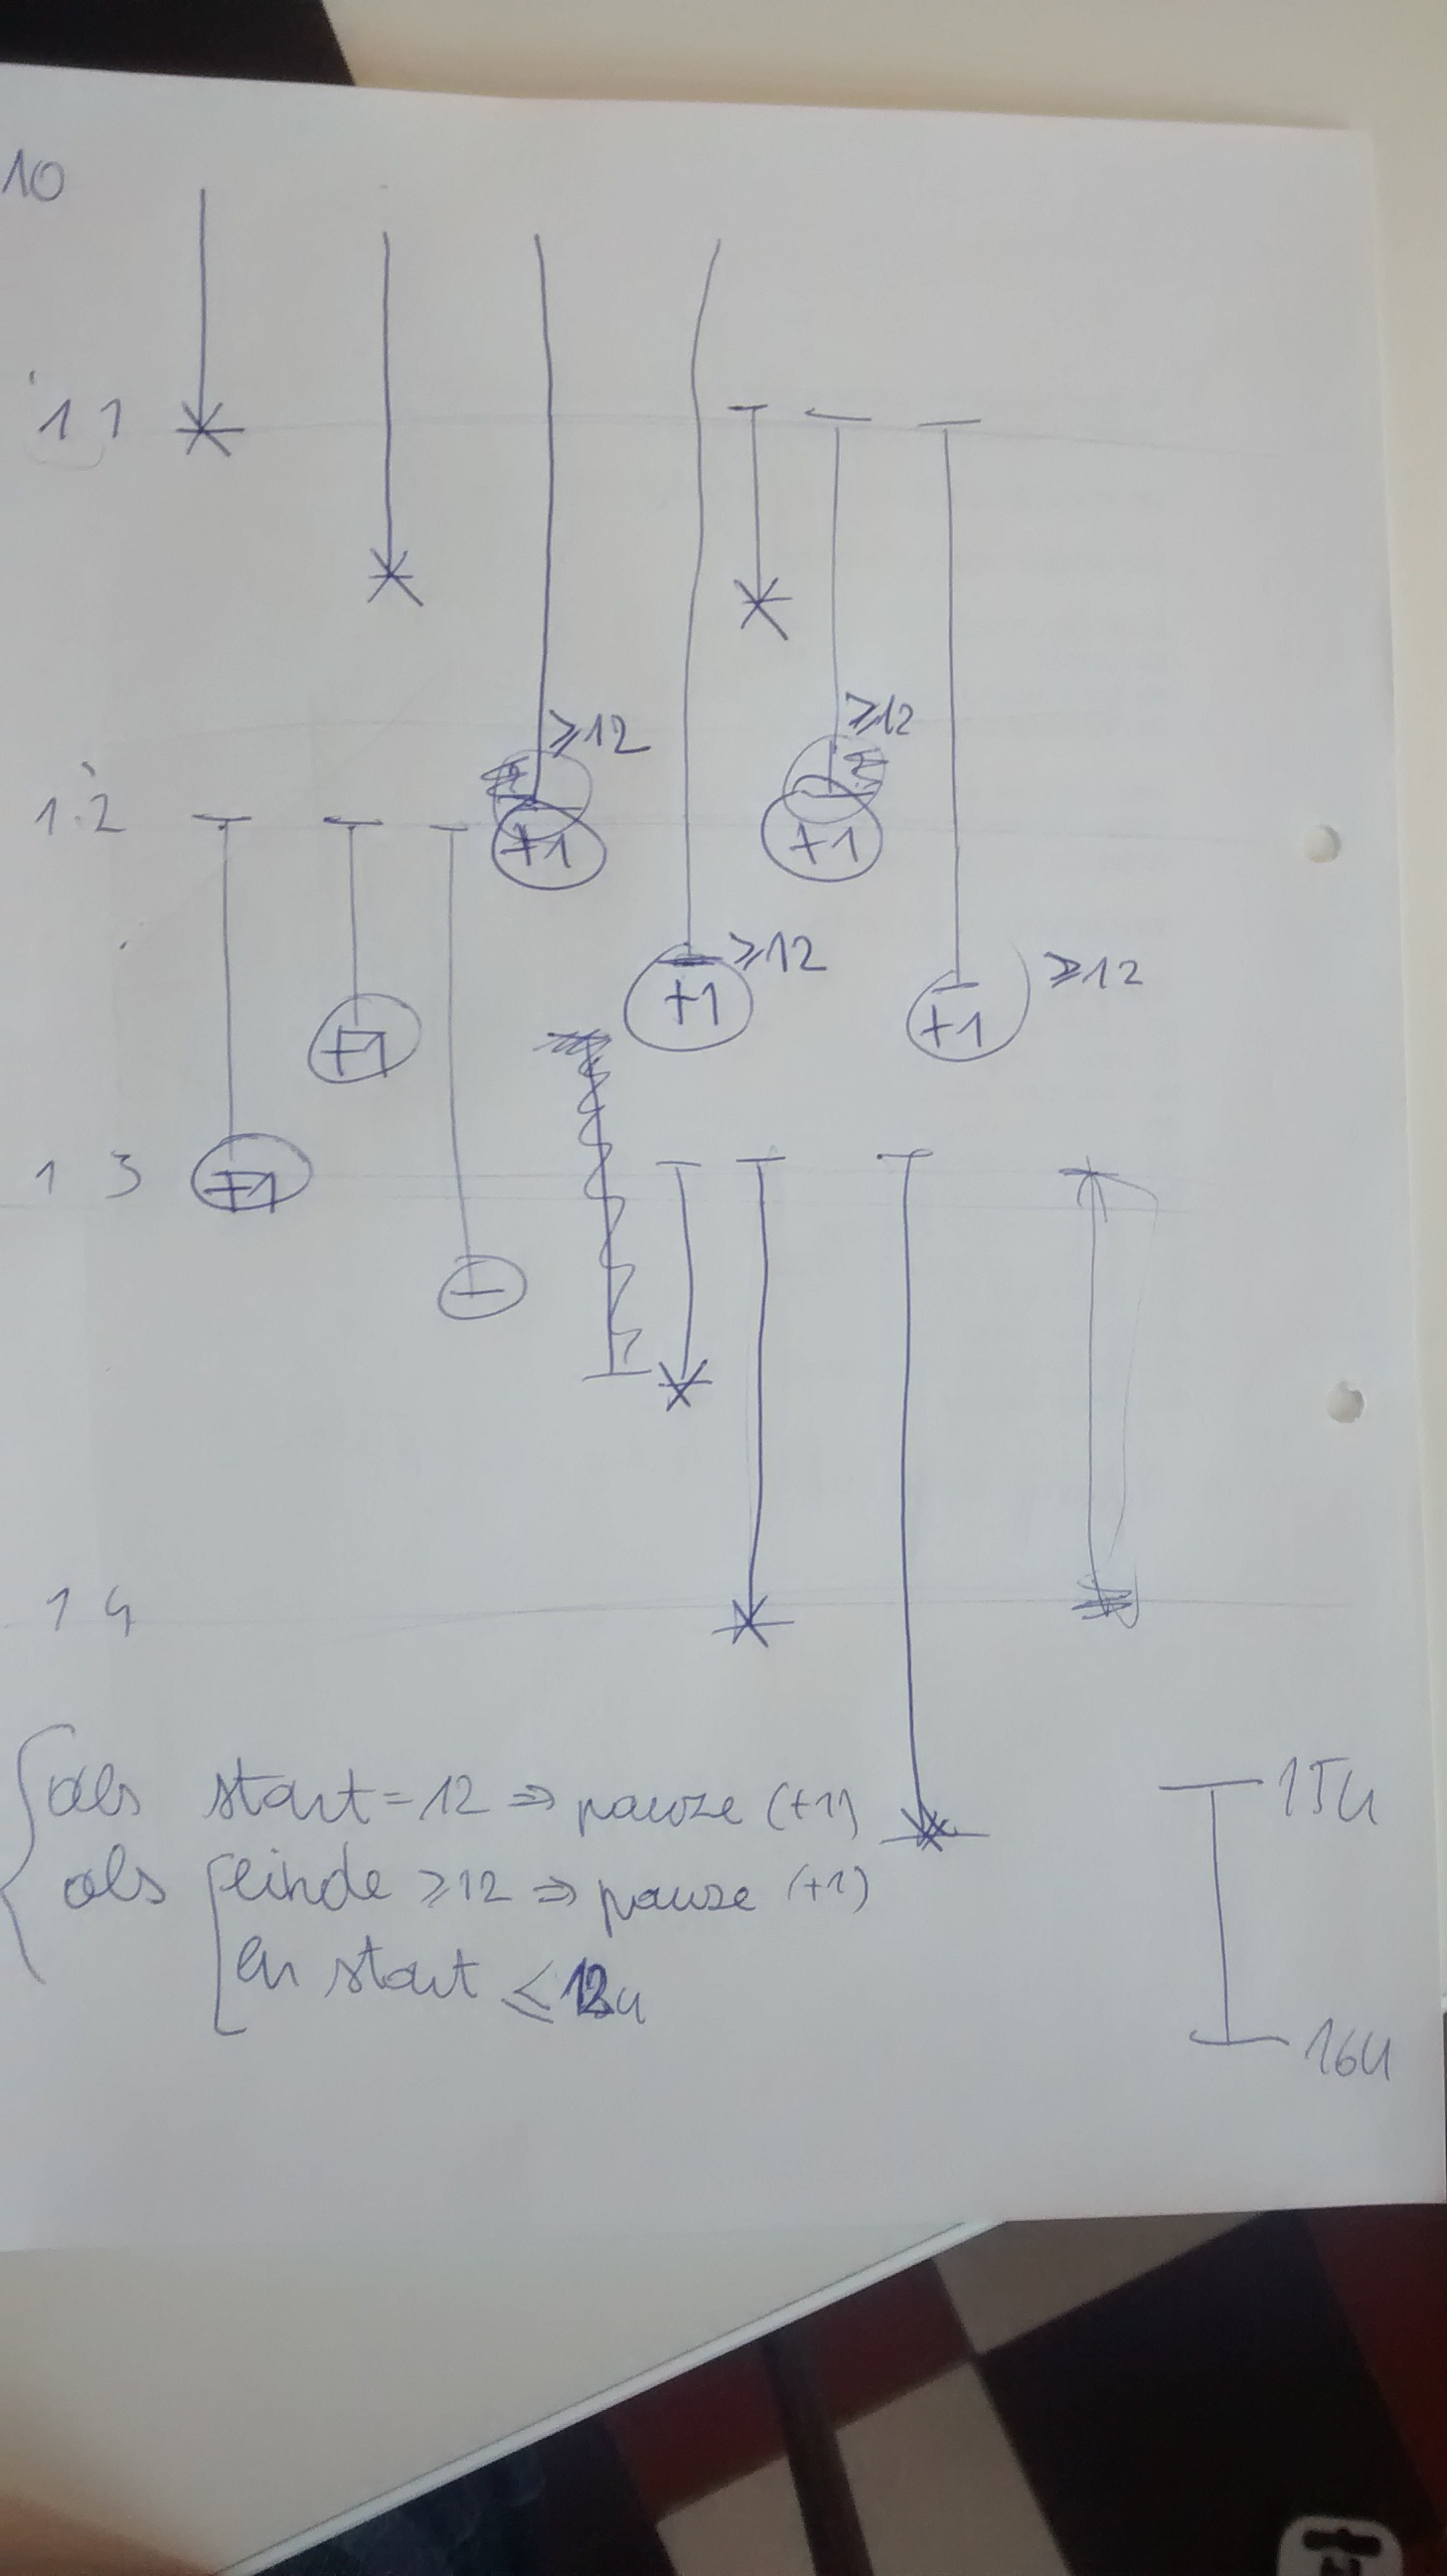 10
11
≥12
≥12
12
+1
+1
≥12
≥12
+1
+1
+1
13
+1
14
als start = 12 => pauze (+1)
15u
als einde ≥12 => pauze (+1)
en start ≤ 12u
16u